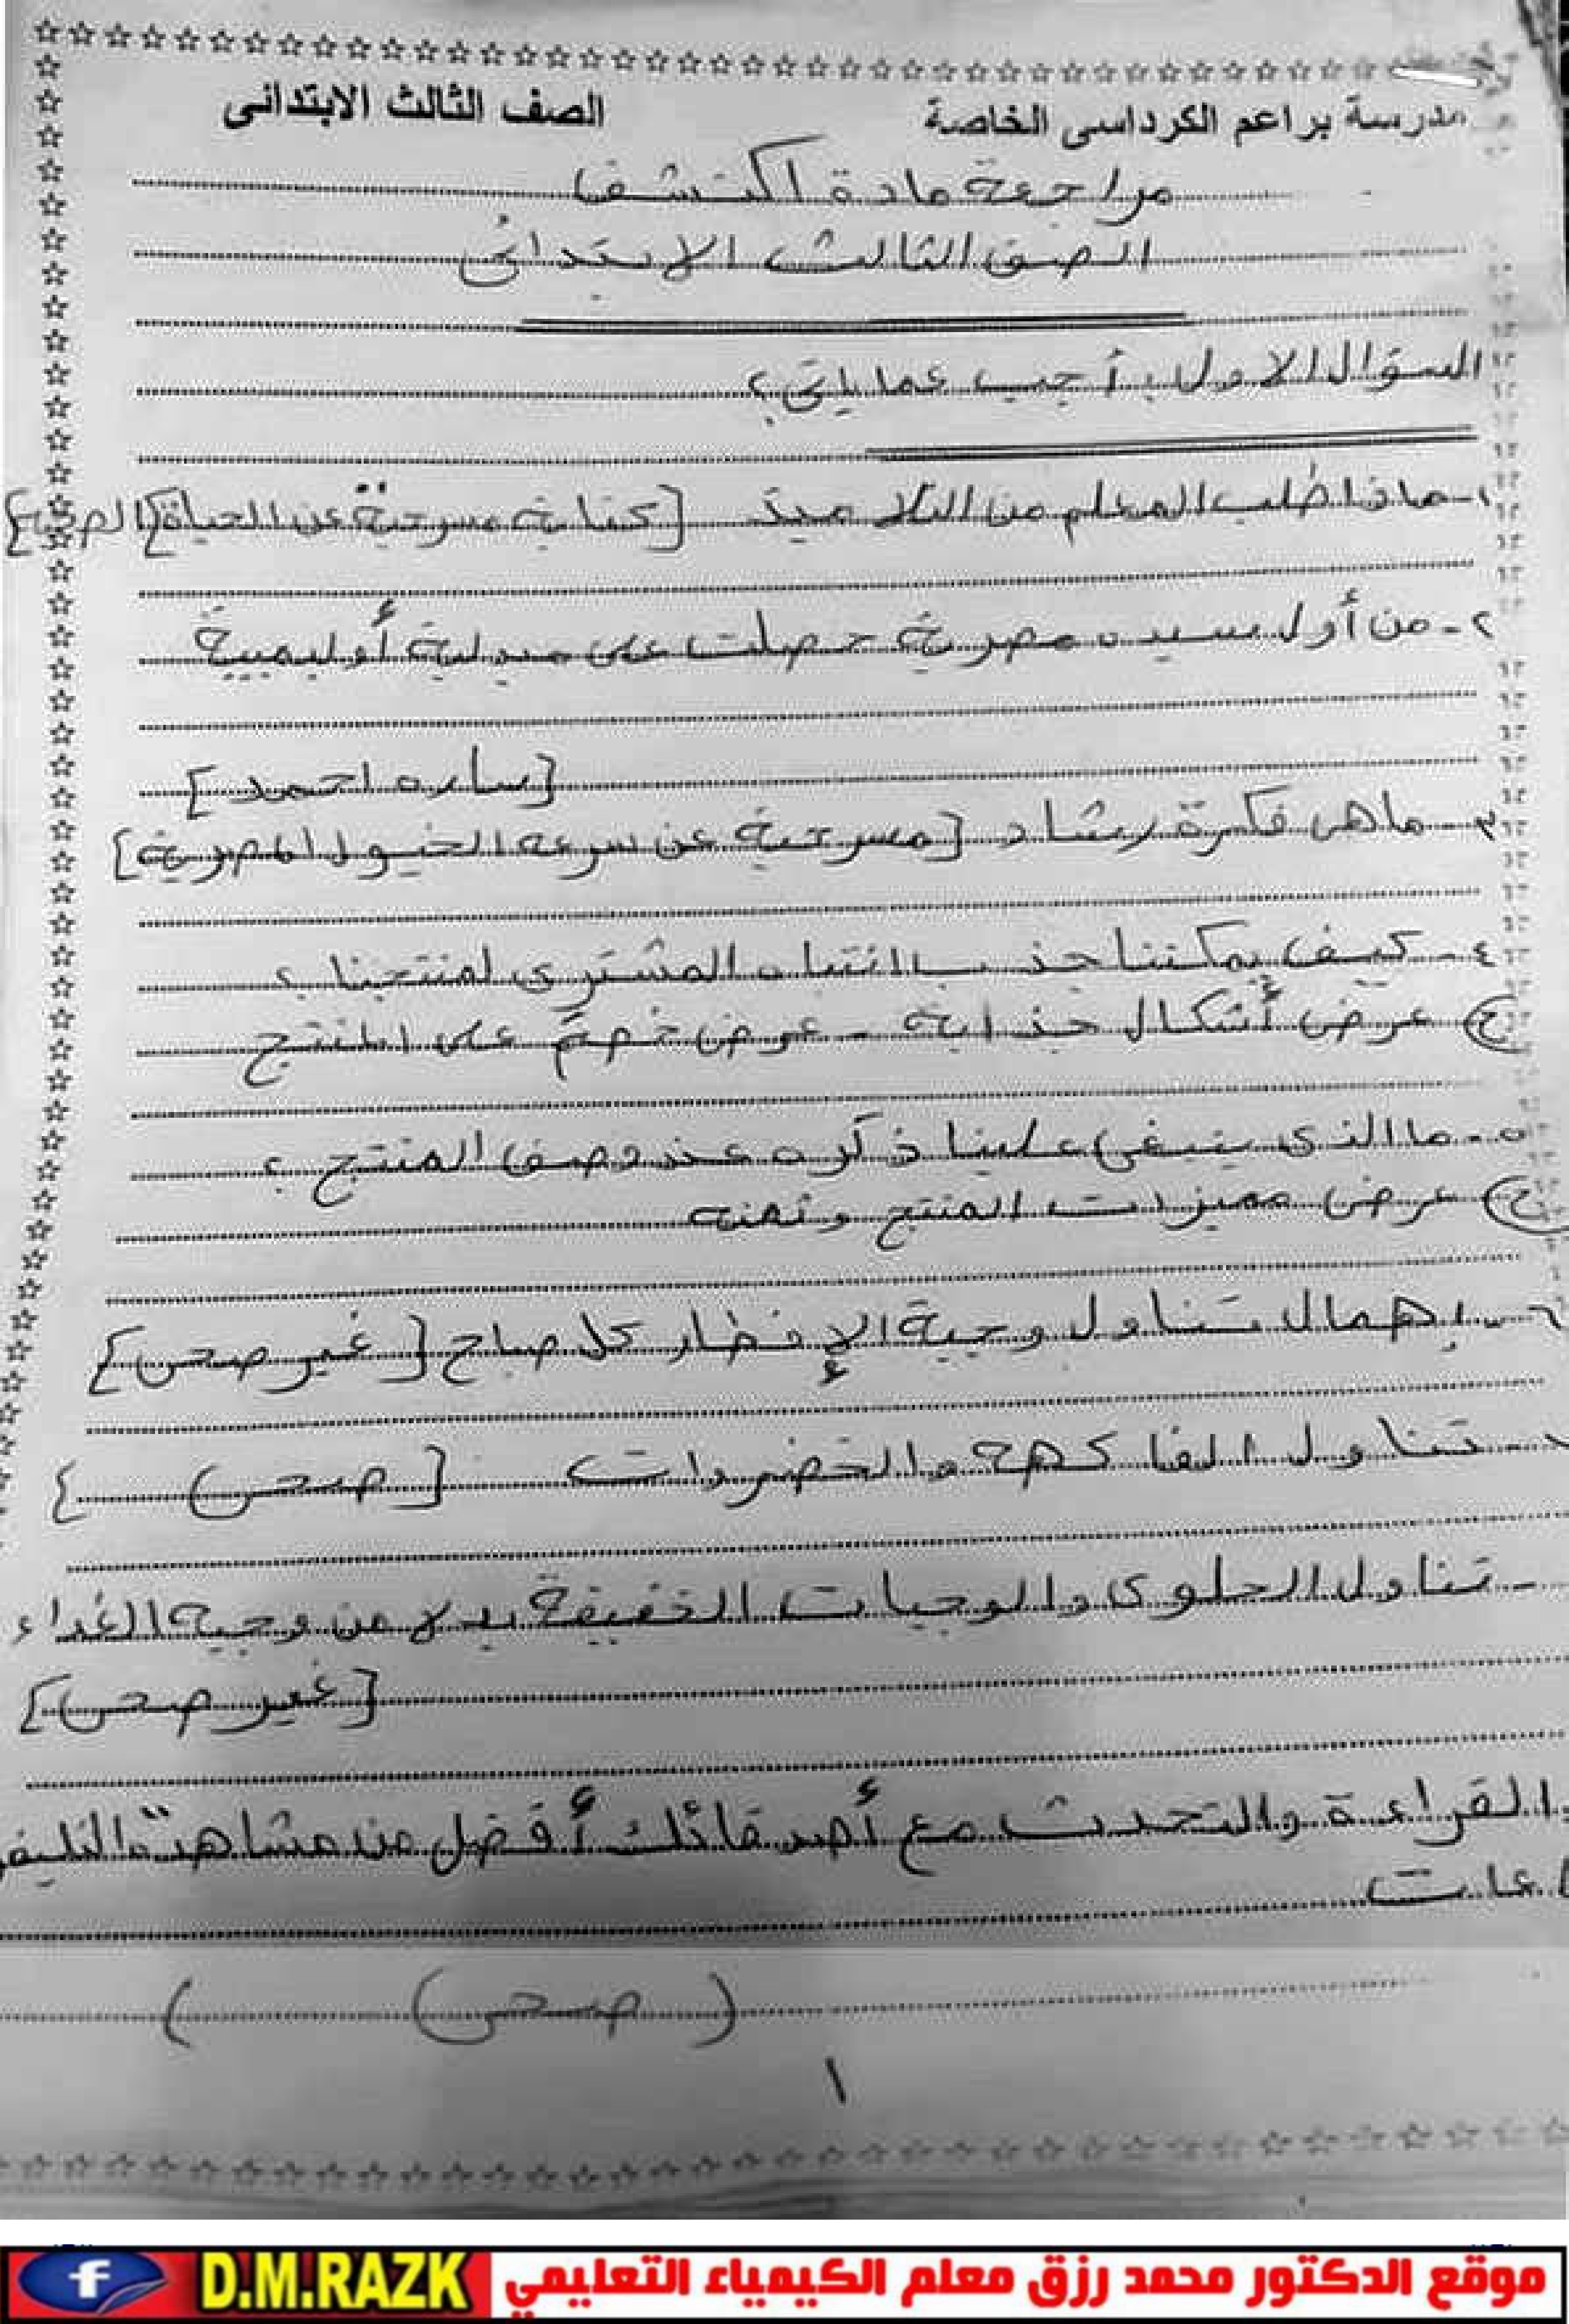 مدرسة براعم الكرداسى الخاصة
الصف الثالث الابتدائى
مراجعة مادة اكتشف
الصف الثالث الابتدائى
السؤال الاول : أجب عما يأتى ؟
١- ماذا طلب المعلم من التلاميذ [كتابة مسرحية عن الحياة]
٢- من أول سيده مصرية حصلت على ميدلية أوليمبية
[ساره احمد]
٣- ماهى فكرة رشاد [مسرحية عن سرعه الخيول المصرية]
٤- كيف يمكننا جذب انتباه المشترى لمنتجنا ؟
ج عرض أشكال جذابة - عرض خصم على المنتج
٥- ما الذى ينبغى علينا ذكره عند وصف المنتج ؟
ج عرض مميزات المنتج وثمنه
٦- إهمال تناول وجبة الإفطار كل صباح [غير صحى]
- تناول الفاكهة والخضروات [صحى]
- تناول الحلوى والوجبات الخفيفة بدلا من وجبه الغداء
[غير صحى]
القراءة والتحدث مع أصدقائك أفضل من مشاهدة
(صحى)
١
f D.M.RAZK موقع الدكتور محمد رزق معلم الكيمياء التعليمي